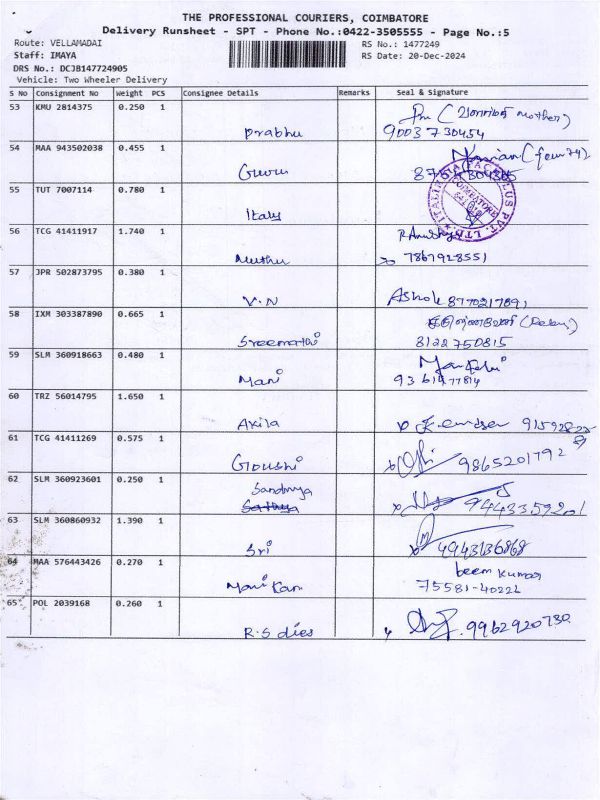 THE PROFESSIONAL COURIERS, COIMBATORE
Delivery Runsheet - SPT - Phone No.:0422-3505555 - Page No.:5
Route: VELLAMADAI
RS No.: 1477249
Staff: IMAYA
RS Date: 20-Dec-2024
DRS No.: DCJB147724905
Vehicle: Two Wheeler Delivery
S No Consignment No Weight PCS Consignee Details Remarks Seal & Signature
53 KMU 2814375 0.250 1
Prabhu
mother)
9003730454
54 MAA 943502038 0.455 1
Guru
55 TUT 7007114 0.780 1
Italy
COIMBATORE
56 TCG 41411917 1.740 1
Muthu
7867928551
57 JPR 502873795 0.380 1
V.N
Ashok
58 IXM 303387890 0.665 1
Sreemathi
8122750815
59 SLM 360918663 0.480 1
Mani
60 TRZ 56014795 1.650 1
Akila
61 TCG 41411269 0.575 1
Goushi
9865201792
62 SLM 360923601 0.250 1
Sandhya
Sathya
63 SLM 360860932 1.390 1
Sri
64 MAA 576443426 0.270 1
Mani Kan
beem kumar
65 POL 2039168 0.260 1
R.S dies
9962920730